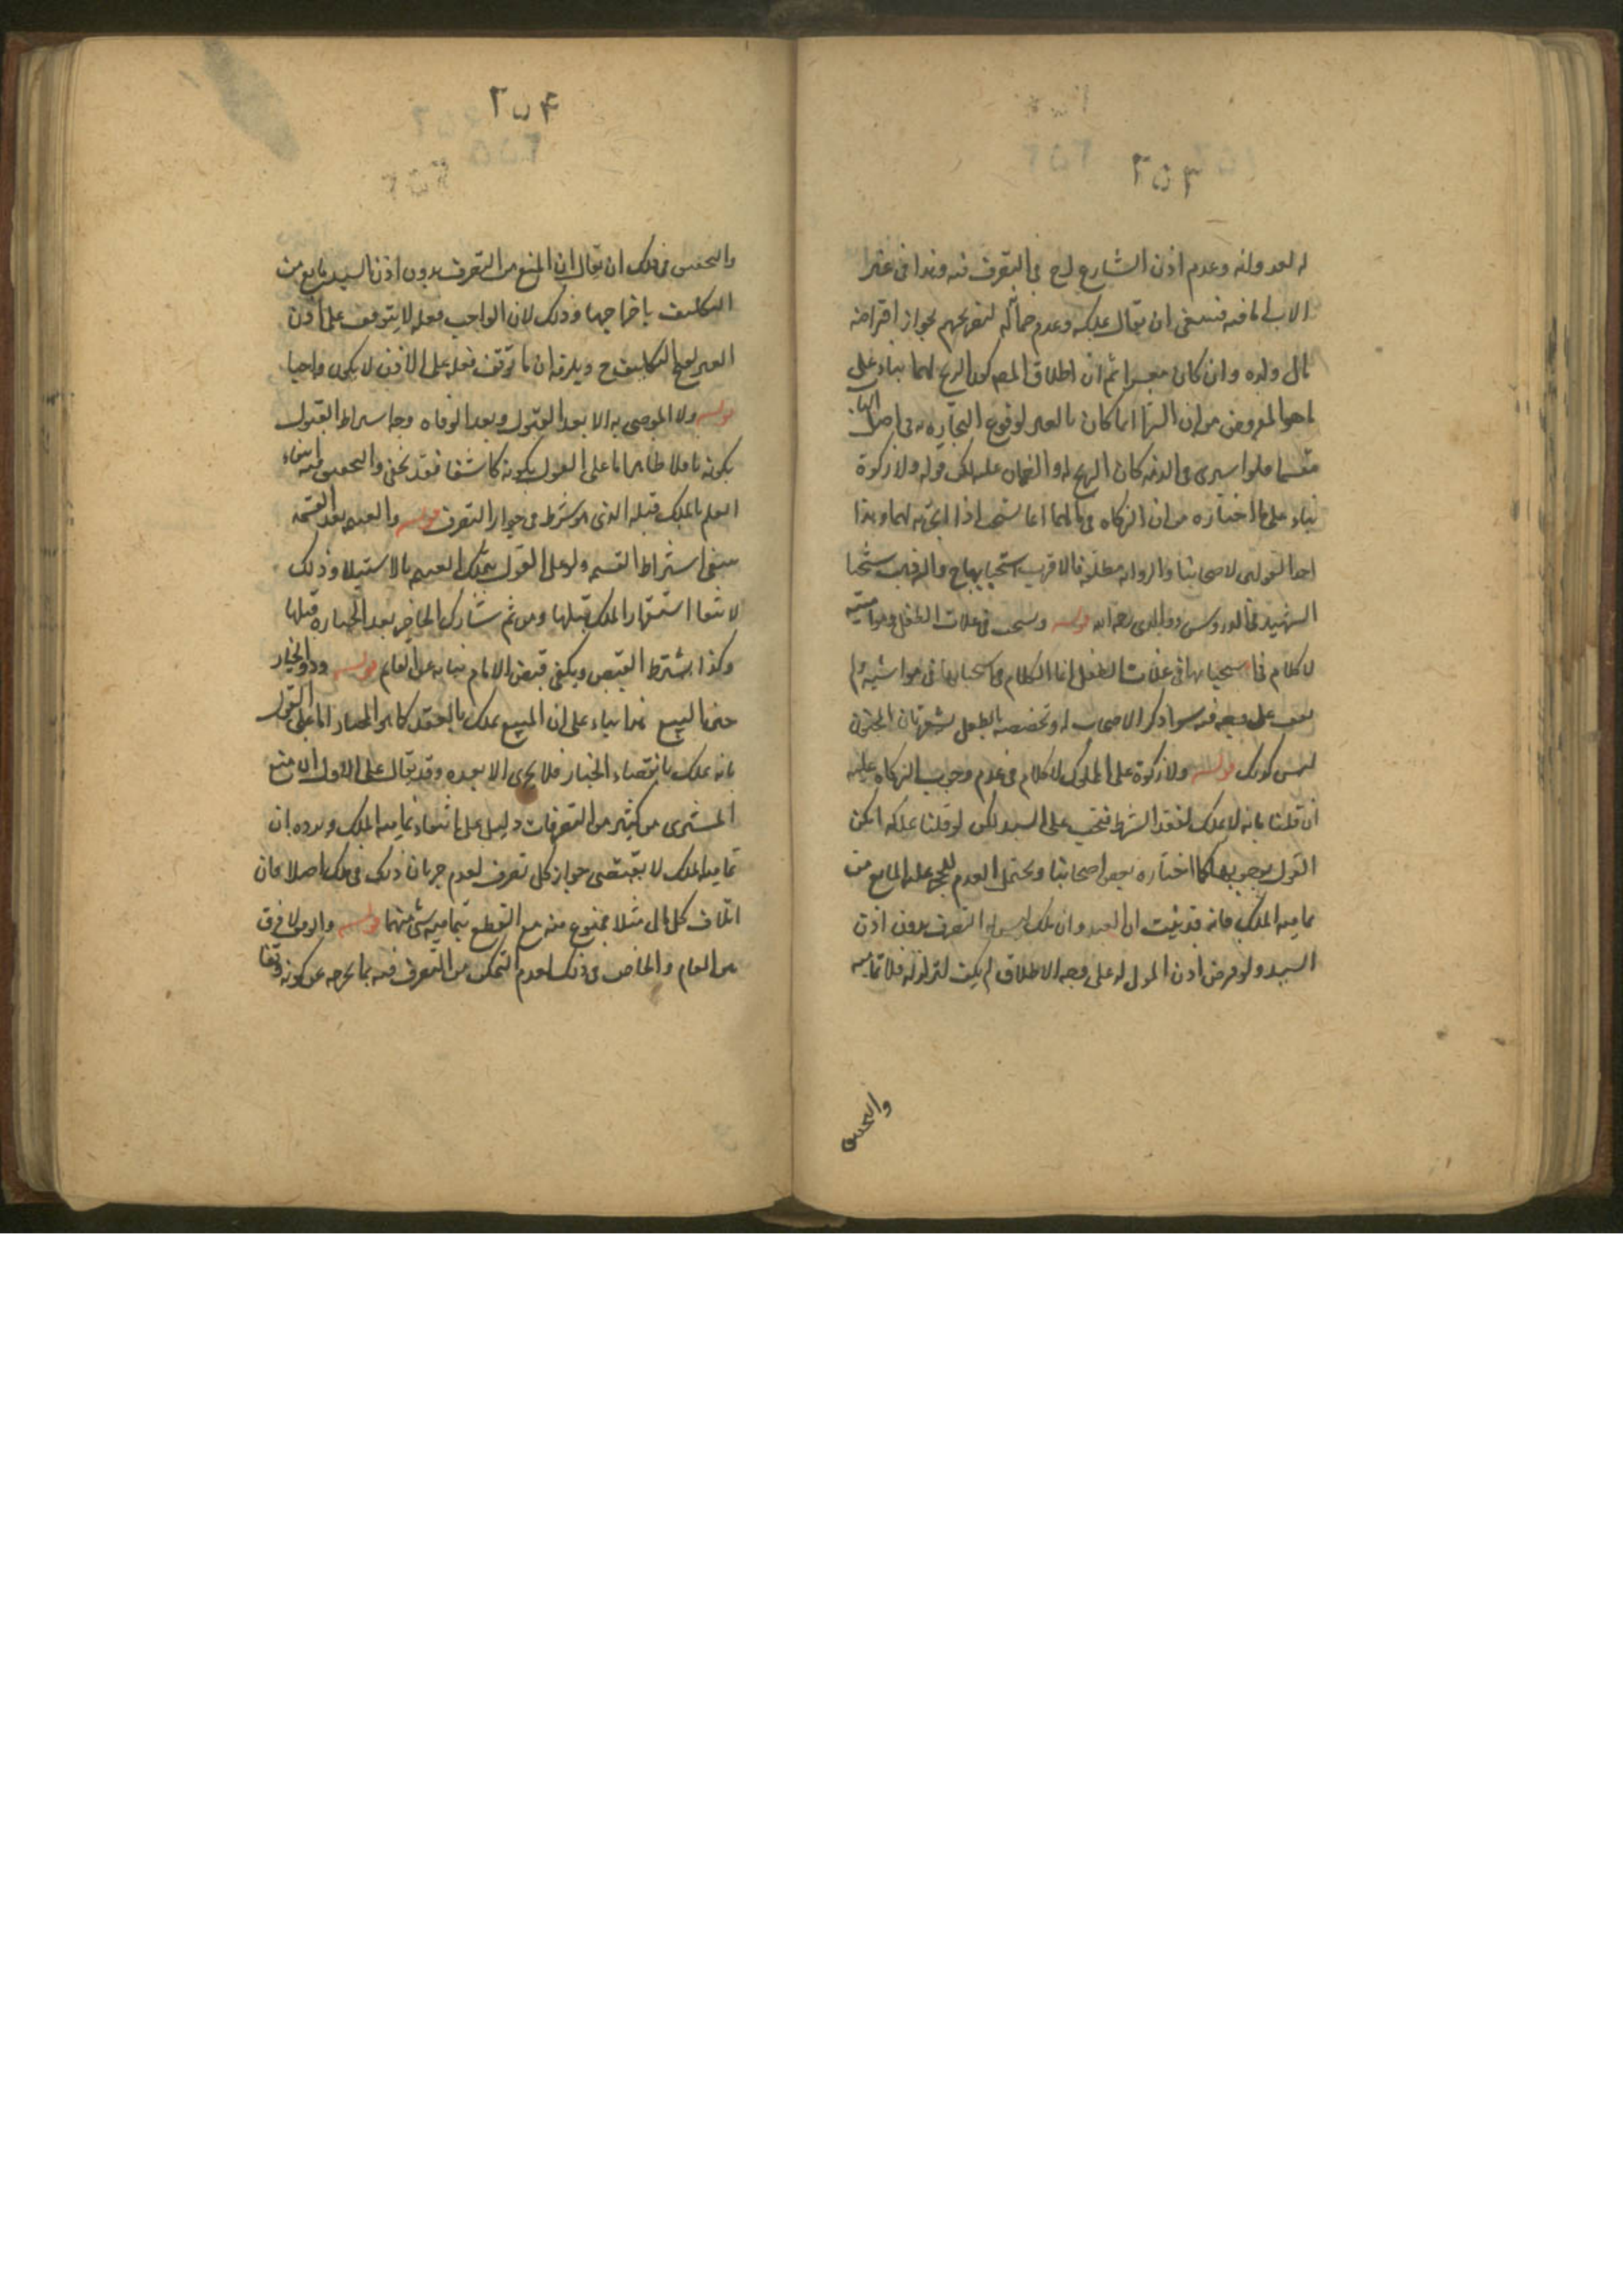 ٢٥٣
له لعدوانه وعدم اذن الشارع له ح في التصرف فيه وهذا في غير
الاب اما فيه فينبغي ان يقال بملكه وعدم ضمانه لتصريحهم بجواز اقتراضه
مال ولده وان كان معسرا ثم ان اطلاق المصر كون الربح لهما بناء على
ما هو المفروض من ان الشراء انما كان بالعين لوقوع التجارة به في احدهما
فلو اشترى في الذمة كان الربح له والضمان عليه لكن قوله ولا زكوة
بناء على ما اختاره من ان الزكاه في مالهما انما تستحب اذا اتجر به لهما وهذا
احد القولين لاصحابنا والرواية مطلقة فالاقرب استحبابها ح والى ذهب شيخنا
الشهيد في الدروس ووالدى رحمه الله قوله ويستحب في غلات الطفل ومواشيه
لا كلام في استحبابها في غلات الطفل انما الكلام في استحبابها في مواشيه ولم
نقف على وجه فيه سوا ذكر الاصحاب له وتخصيصه بالطفل يشعر بان المجنون
ليس كذلك قوله ولا زكوة على المملوك لا كلام في عدم وجوب الزكاه عليه
ان قلنا بانه لا يملك لفقد الشرط فتجب على السيد لكن لو قلنا بملكه امكن
القول بوجوبها كما اختاره بعض اصحابنا ويحتمل العدم للحجر عليه المانع من
تمامية الملك فانه قد ثبت ان العبد وان ملك ليس له التصرف بدون اذن
السيد ولو فرض اذن المولى له على وجه الاطلاق لم يكف لتزلزله فلا تماميه
والتحقيق
٢٥٤
والتحقيق في ذلك ان يقال ان المنع من التصرف بدون اذن السيد مانع من
التكليف باخراجها وذلك لان الواجب فعله لا يتوقف على اذن
الغير لقبح التكليف ح ويلزمه ان ما توقف فعله على الاذن لا يكون واجبا
قوله ولا الموصى به الا بعد القبول وبعد الوفاه وجه اشتراط القبول
بكونه ناقلا ظاهر اما على القول بكونه كاشفا فقد يخفى والتحقيق فيه انتفاء
العلم بالملك قبله الذي هو شرط في جواز التصرف قوله والغنيمه بعد القسمة
ينبغي اشتراط القسمه ولو على القول بتملك الغنيمه بالاستيلا وذلك
لانتفا استقرار الملك قبلها ومن ثم شارك الحاضر بعد الحيازه قبلها
وكذا يشترط القبض ويكفي قبض الامام نيابه عن الغانم قوله وذو الخيار
حين البيع هذا بناء على ان المبيع يملك بالعقد كما هو المختار اما على القول
بانه يملك بانقضاء الخيار فلا يجري الا بعده وقد يقال على الاول ان منع
المشترى من كثير من التصرفات دليل على انتفاء تمامية الملك ويرده ان
تمامية الملك لا يقتضي جواز كل تصرف لعدم جريان ذلك في ملك اصلا فان
اتلاف كل مال مثلا ممنوع منه مع القطع بتمامية شي منهما قوله والوقف لا فرق
بين العام والخاص في ذلك لعدم التمكن من التصرف فيه بما يخرجه عن كونه وقفا